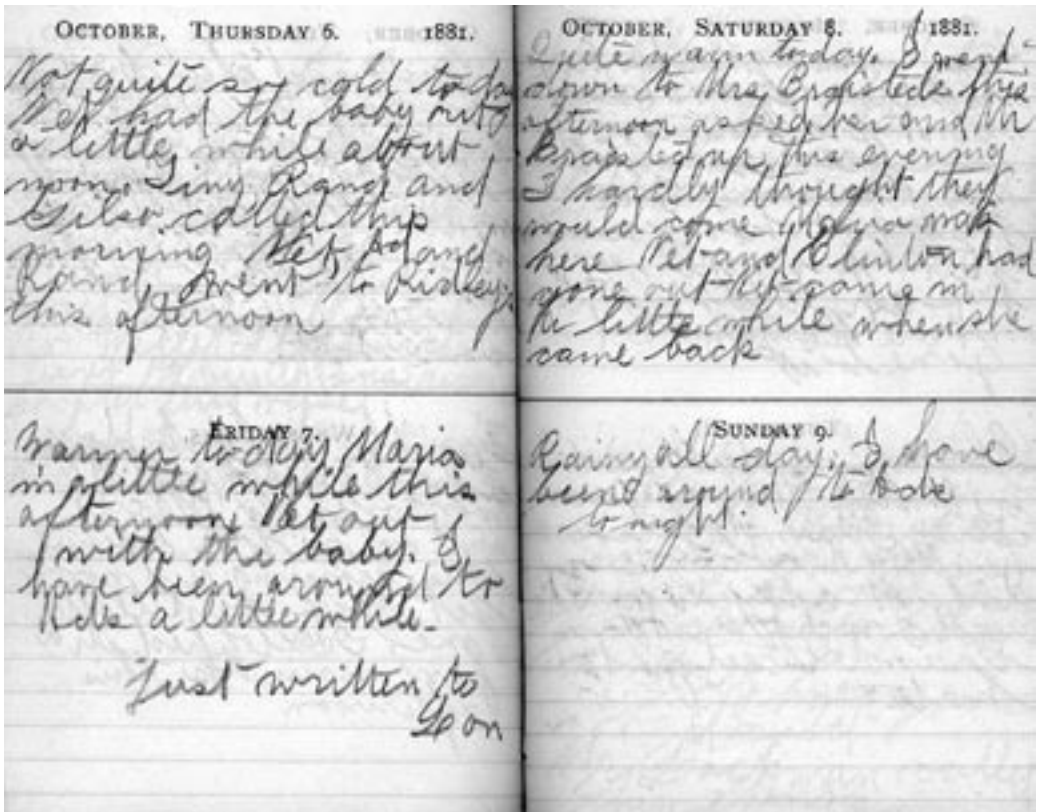 OCTOBER, THURSDAY 6. 1881.
Not quite so cold today
Net had the baby out
a little while about
noon. Tiny Rand and
called this
morning Net and
Rand went to
this afternoon
FRIDAY 7.
Warmer today Maria
in a little while this
afternoon Net out
with the baby. I
have been around to
a little while.
Just written to
Lon
OCTOBER, SATURDAY 8. 1881.
Quite warm today. I went
down to Mrs Braisteds this
afternoon asked her and Mr
Braisted up this evening
I hardly thought they
would come was
here Net and Clinton had
gone out Net came in
a little while when she
came back
SUNDAY 9.
Rainy all day. I have
been around to
tonight.